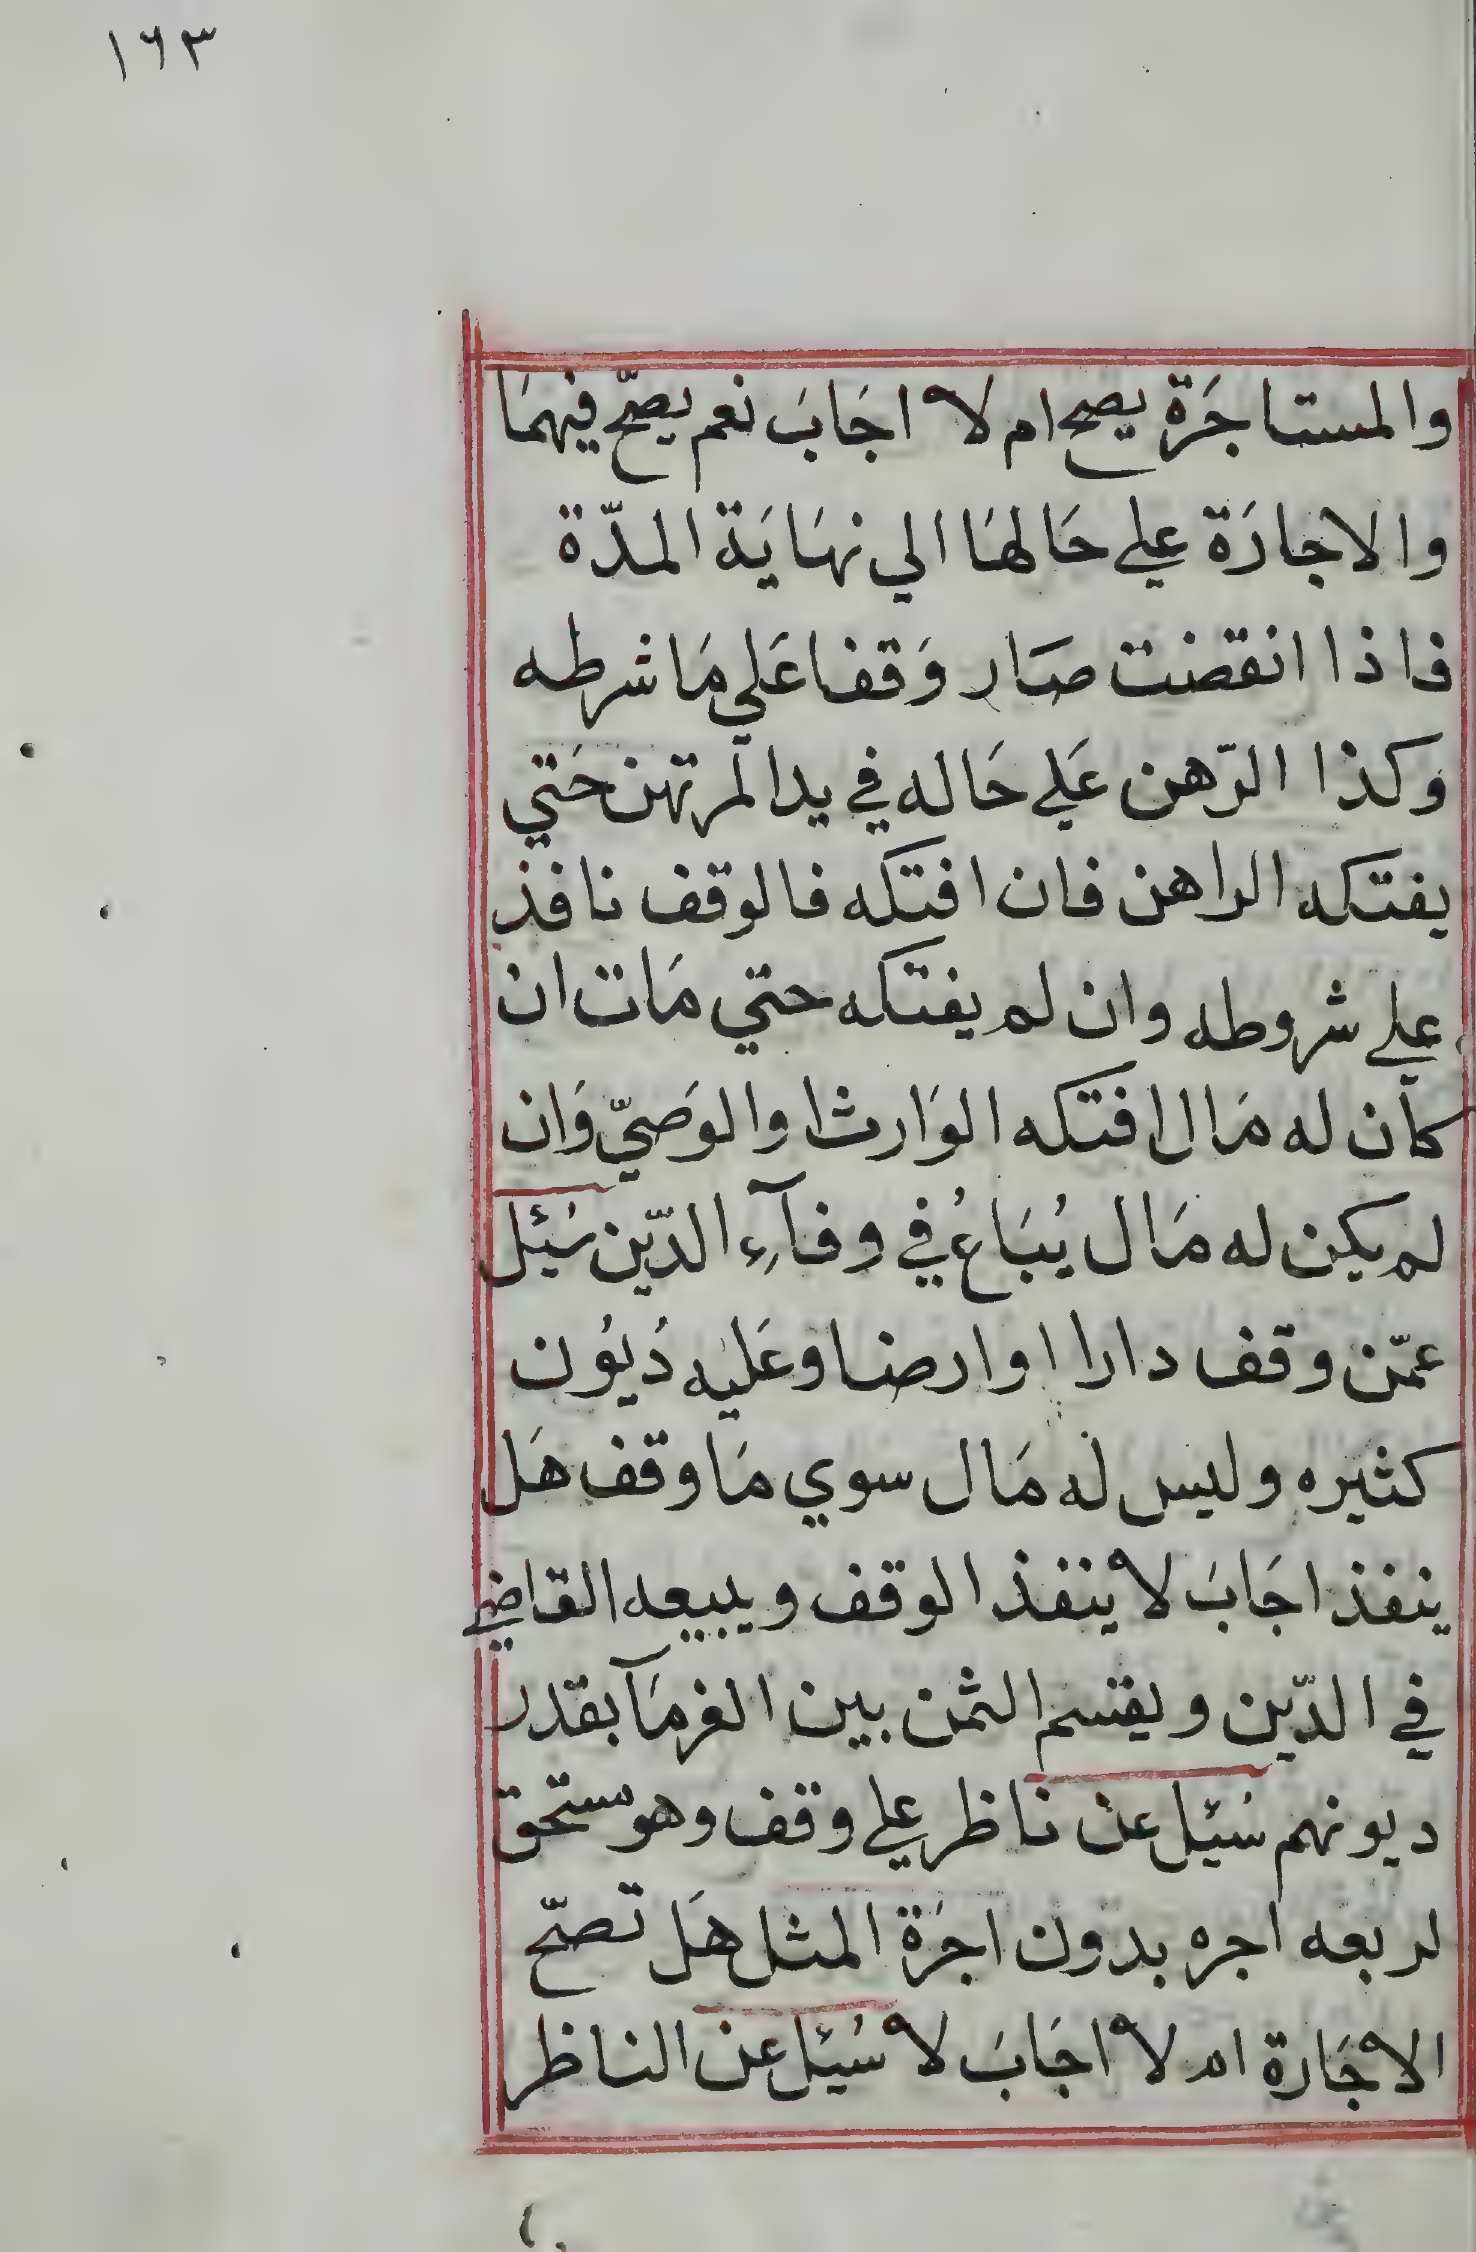 ١٦٣
والمستاجَرة يصح ام لا اجَابَ نعم يصحّ فيهمَا
والاجارَة علي حَالهَا الي نهَايَة المدّة
فاذا انقضت صَار وَقفا عَلي مَا شرطه
وَكذا الرّهن عَلي حَاله في يد المرتهن حَتي
يفتكه الراهن فان افتكه فالوقف نافذ
علي شروطه وان لم يفتكه حتي مَات ان
كان له مَال افتكه الوَارث او الوَصيّ وَان
لم يكن له مَال يُبَاعُ في وفآءِ الدّين سُئِل
عمّن وقف دارا او ارضا وعَليه دُيوُن
كثيره وليس له مَال سوي مَا وقف هَل
ينفذ اجَابَ لا ينفذ الوقف ويبيعه القاضي
في الدّين ويقسم الثمن بين الغرمَآ بقدر
ديونهم سُئِل عن ناظر علي وقف وهو مستحق
لربعه اجره بدون اجرَة المثل هَل تصحّ
الاجَارة ام لا اجَابَ لا سُئِل عن الناظر